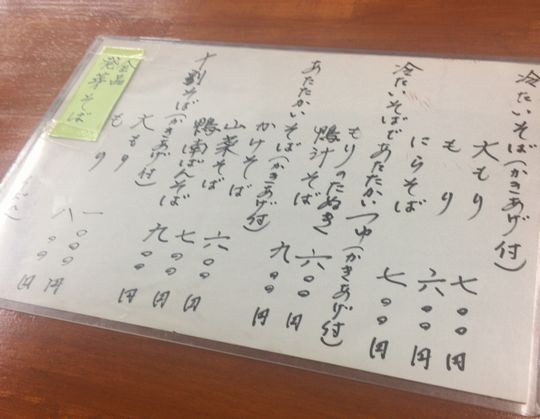 冷たいそば(かきあげ付)
大もり 七〇〇円
もり 六〇〇円
にらそば 七〇〇円
冷たいそばであたたかいつゆ(かきあげ付)
もりのたぬき 六〇〇円
鴨汁そば 九〇〇円
あたたかいそば(かきあげ付)
かけそば 六〇〇円
山菜そば 七〇〇円
鴨南ばんそば 九〇〇円
十割そば(かきあげ付)
大もり 一〇〇〇円
もり 八〇〇円
全品
発芽そば